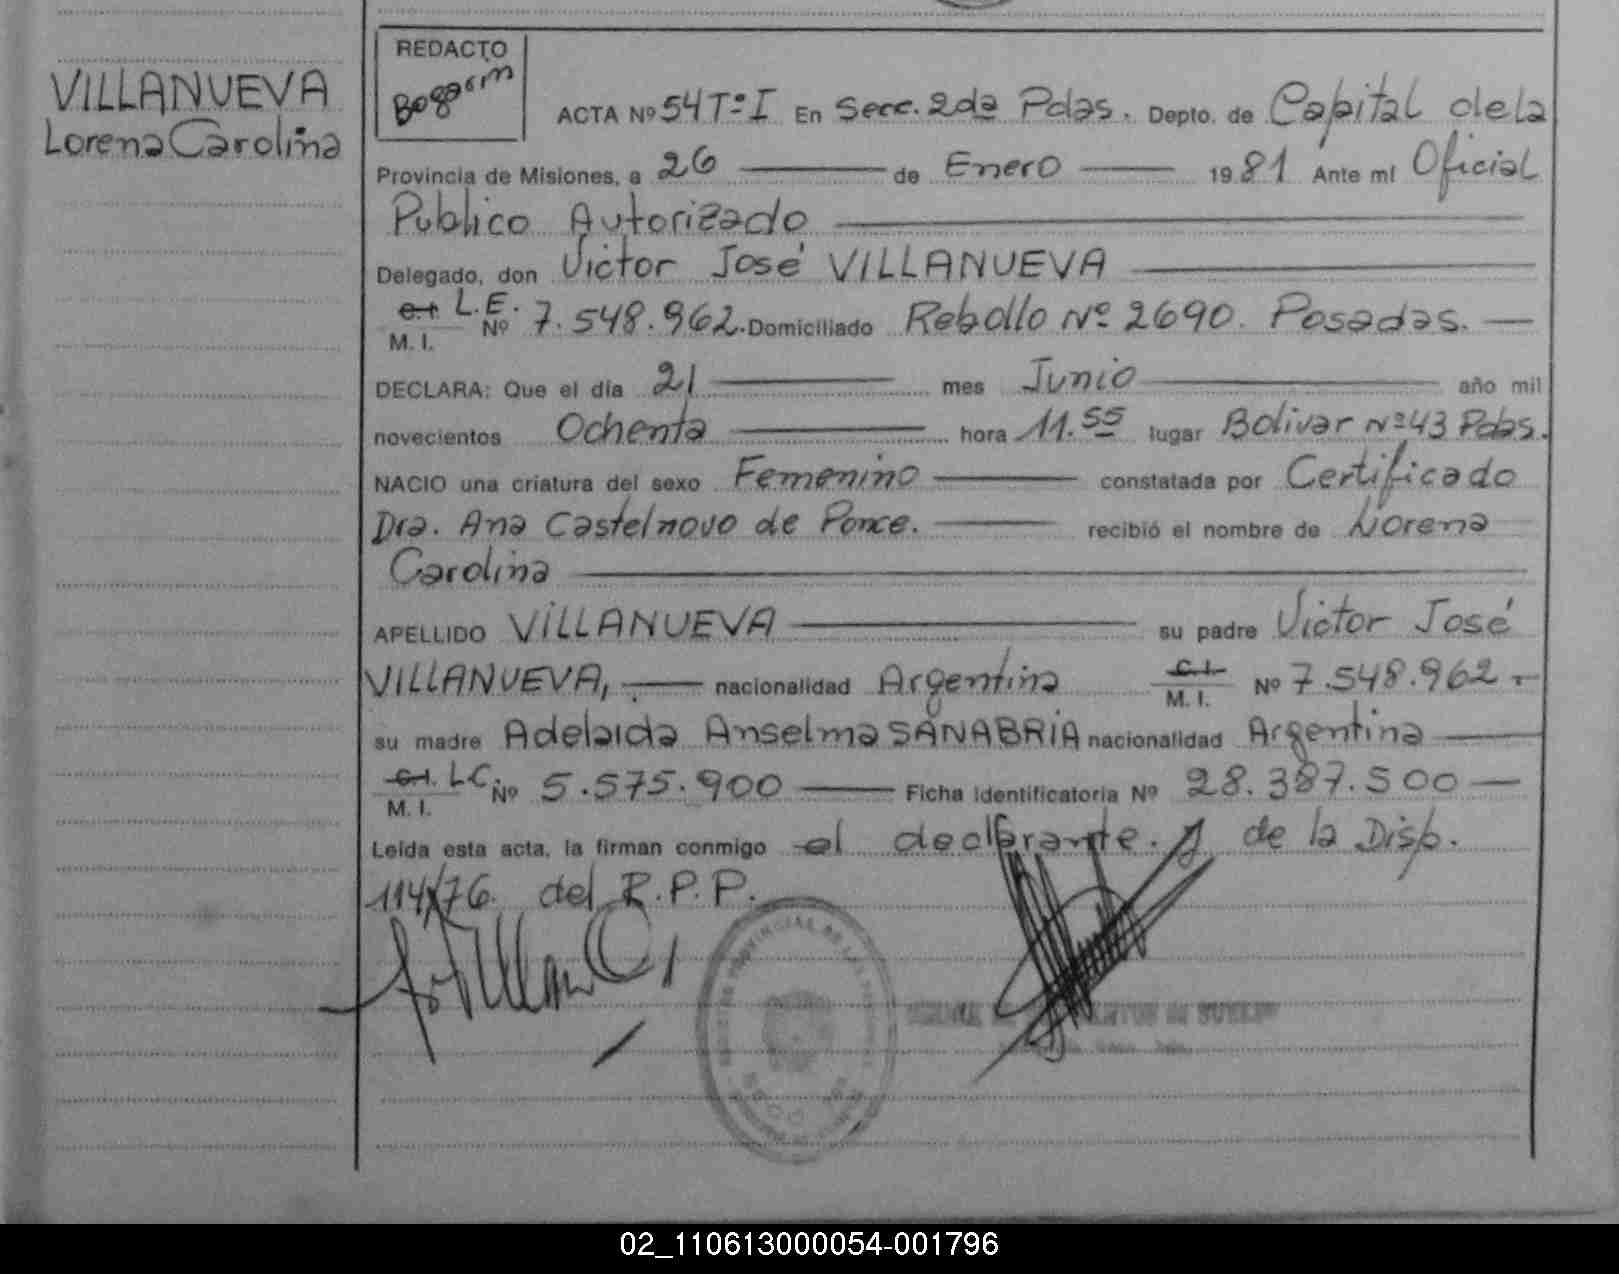 VILLANUEVA
Lorena Carolina
REDACTO
ACTA Nº 54 Tº I En Secc. 2da Pdas. Depto. de Capital de la
Provincia de Misiones, a 26 de Enero 1981 Ante mí Oficial
Publico Autorizado
Delegado, don Victor José VILLANUEVA
C.I. L.E.
M. I. Nº 7.548.962. Domiciliado Rebollo Nº 2690. Posadas.
DECLARA: Que el día 21 mes Junio año mil
novecientos Ochenta hora 11.55 lugar Bolivar Nº 43 Pdas.
NACIO una criatura del sexo Femenino constatada por Certificado
Dra. Ana Castelnovo de Ponce. recibió el nombre de Lorena
Carolina
APELLIDO VILLANUEVA su padre Victor José
VILLANUEVA, nacionalidad Argentina C.I. M. I. Nº 7.548.962.
su madre Adelaida Anselma SANABRIA nacionalidad Argentina
C.I. LC. M. I. Nº 5.575.900 Ficha Identificatoria Nº 28.387.500
Leída esta acta, la firman conmigo el declarante. y de la Disp.
114/76. del R.P.P.
02_110613000054-001796